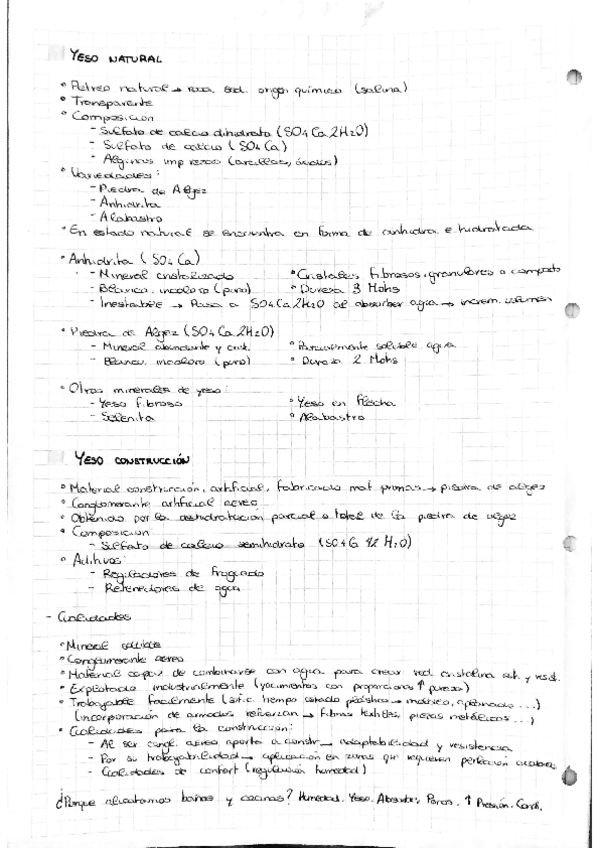 YESO NATURAL
° Pétreo natural → roca sed. orige. químico (salina)
° Transparente
° Composición
- Sulfato de calcio dihidrato (SO4Ca2H2O)
- Sulfato de calcio (SO4Ca)
- Algunas impurezas (arcillas, óxidos)
° Variedades:
- Piedra de Aljez
- Anhidrita
- Alabastro
° En estado natural se encuentra en forma de anhidra e hidratada
° Anhidrita (SO4Ca)
- Mineral cristalizado ° Cristales fibrosos, granulares o compacto
- Blanco, incoloro (puro) ° Dureza 3 Mohs
- Inestable → Pasa a SO4Ca2H2O al absorber agua → increm. volumen
° Piedra de Algez (SO4Ca2H2O)
- Mineral abundante y ° Parcialmente soluble agua
- Blanco, incoloro (puro) ° Dureza 2 Mohs
° Otros minerales de yeso:
- Yeso fibroso ° Yeso en flecha
- Selenita ° Alabastro
YESO CONSTRUCCIÓN
° Material construcción, artificial, fabricado mat primas → piedra de algez
° Conglomerante artificial aéreo
° Obtenido por la deshidratación parcial o total de la piedra de algez
° Composición
- Sulfato de calcio semihidrato (SO4Ca 1/2 H2O)
° Aditivos:
- Reguladores de fraguado
- Retenedores de agua
- Cualidades
° Mineral
° Conglomerante aéreo
° Material capaz de combinarse con agua para crear red cristalina est. y resist.
° Explotado industrialmente (yacimientos con proporciones ↑ pureza)
° Trabajable facilmente (tiempo estado plástico → ...)
(incorporación de armados refuerzan → fibras textiles, piezas metálicas ...)
° Cualidades para la construcción:
- Al ser congl. aéreo aporta a constr → adaptabilidad y resistencia
- Por su trabajabilidad → aplicación en zonas que requieren perfección acabados
- Cualidades de confort (regulación humedad)
¿Porque alicatamos baños y cocinas? Humedad. Yeso. Absorbe. Poros. ↑ Presión. Cond.